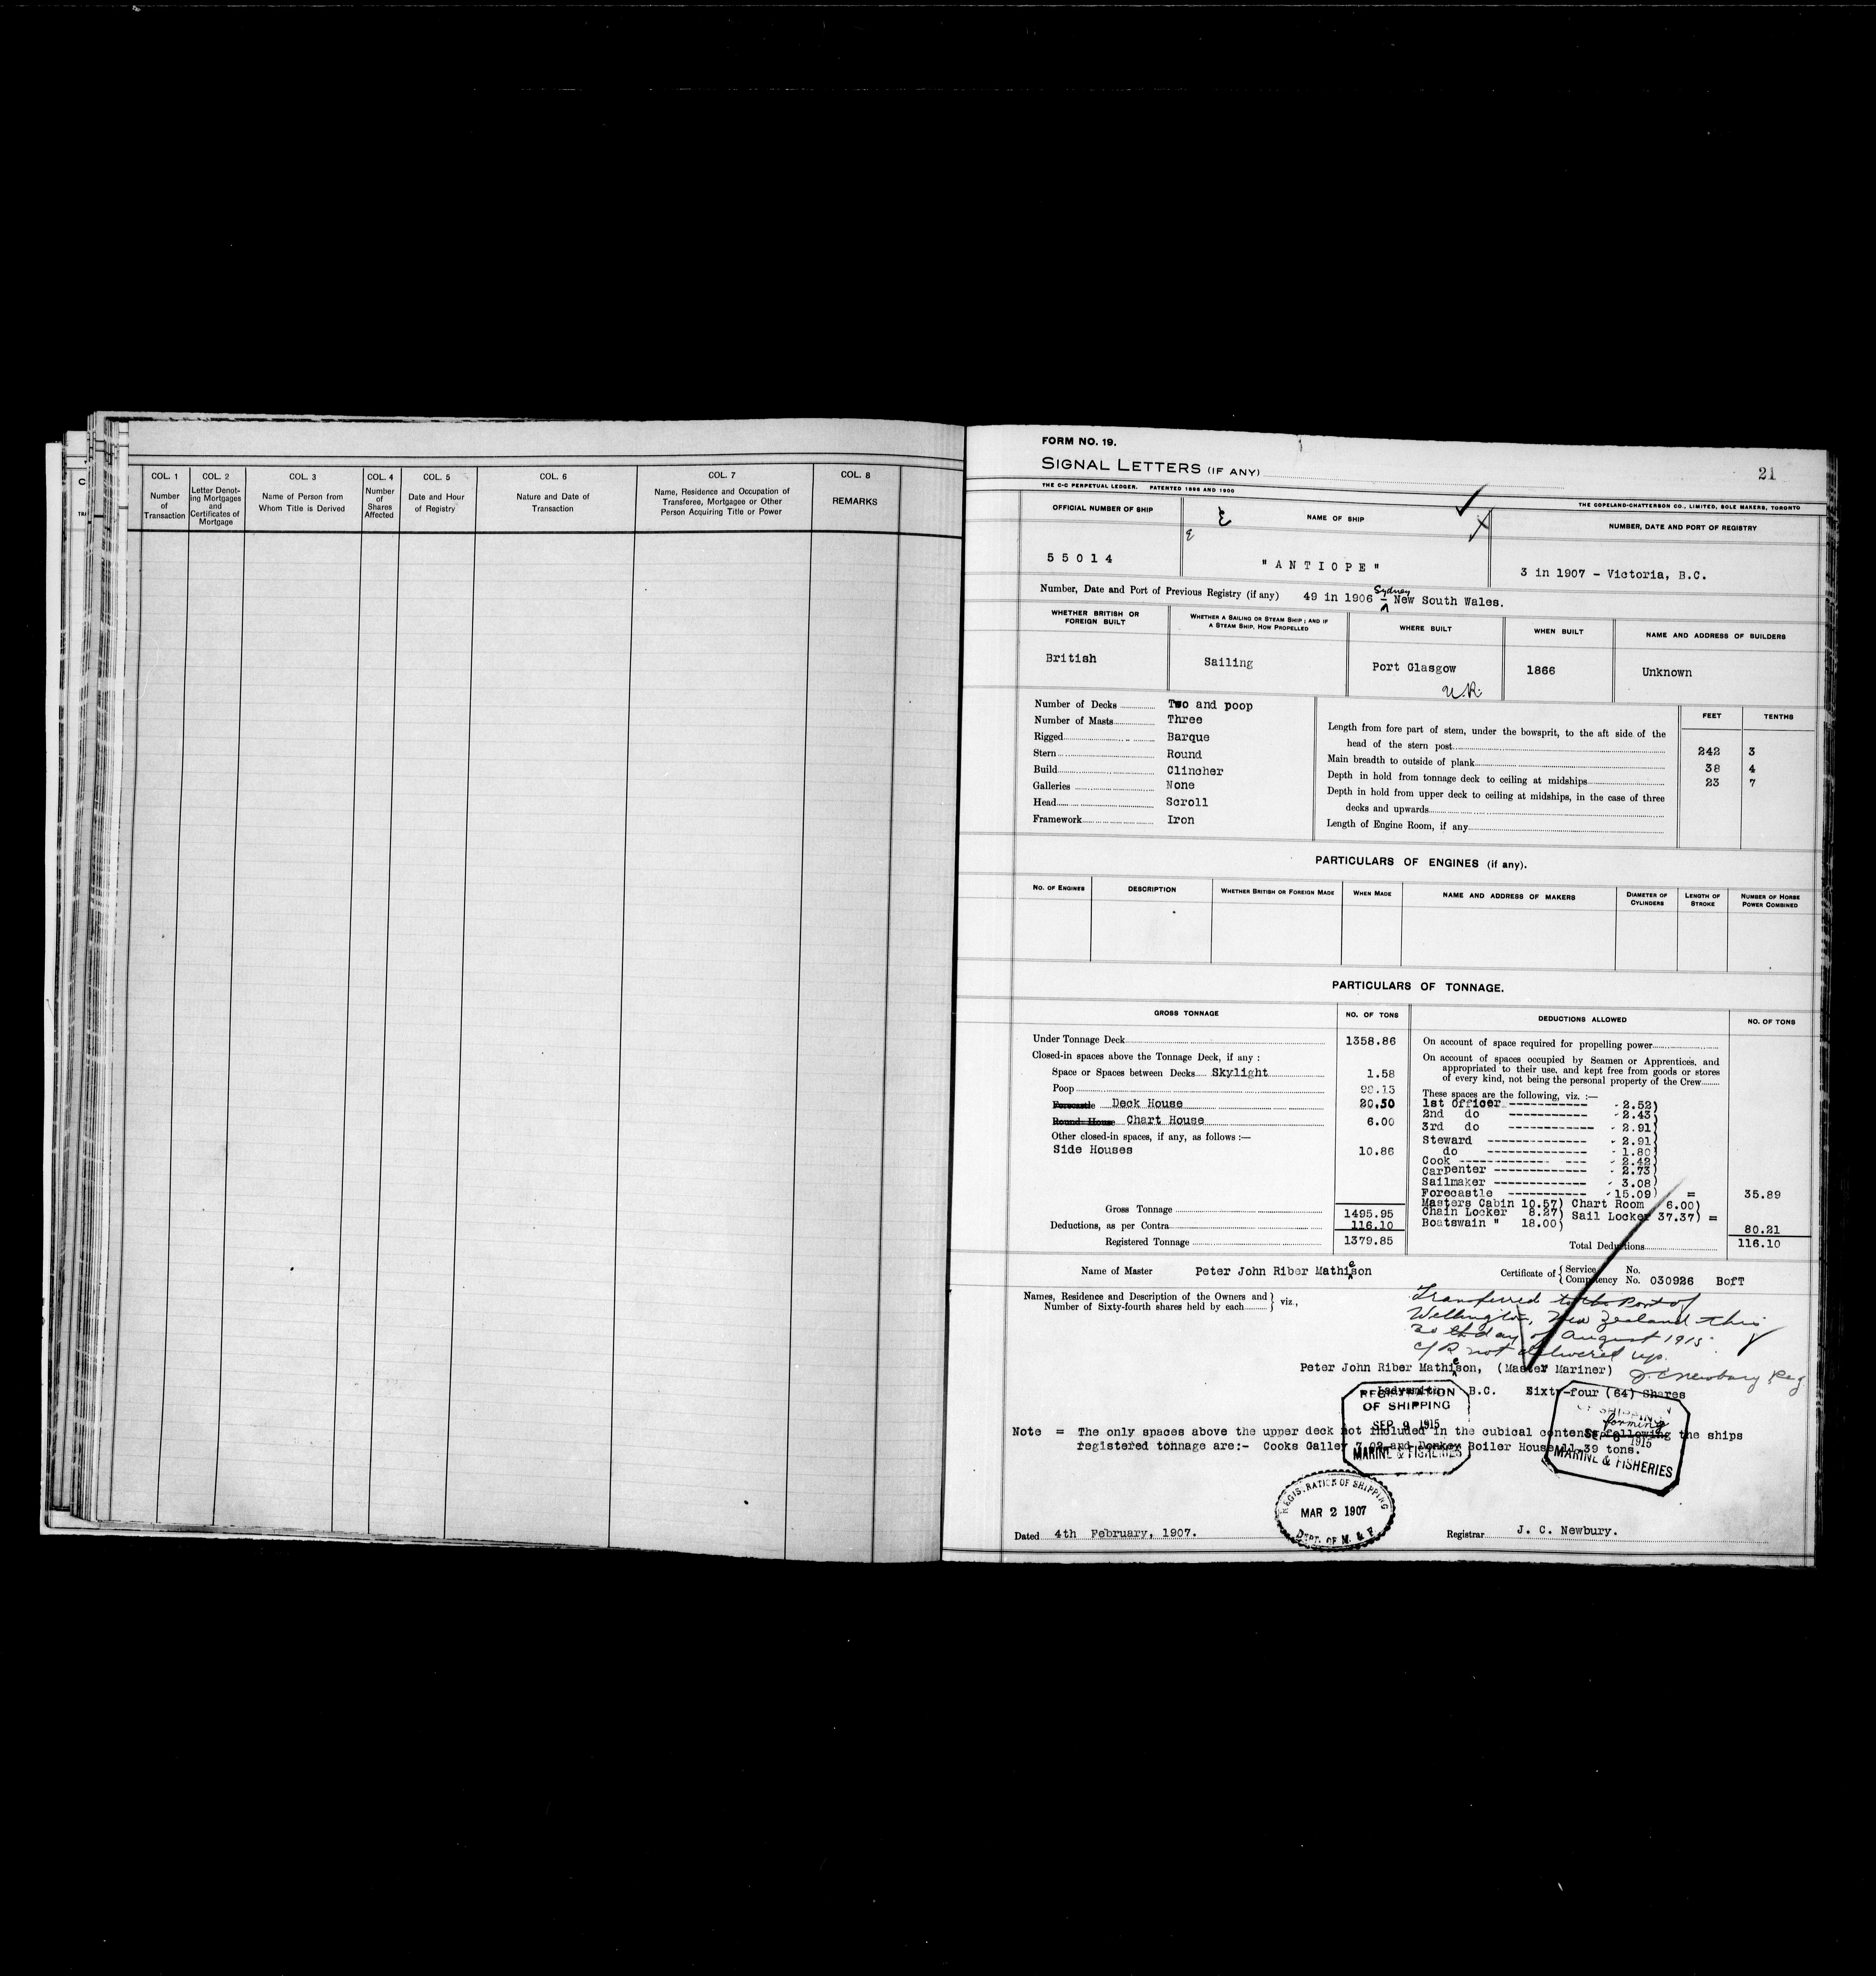 COL. 1 COL. 2 COL. 3 COL. 4 COL. 5 COL. 6 COL. 7 COL. 8
Number of Transaction
Letter Denoting Mortgages and Certificates of Mortgage
Name of Person from Whom Title is Derived
Number of Shares Affected
Date and Hour of Registry
Nature and Date of Transaction
Name, Residence and Occupation of Transferee, Mortgagee or Other Person Acquiring Title or Power
REMARKS
FORM NO. 19.
SIGNAL LETTERS (IF ANY)
21
THE C-C PERPETUAL LEDGER. PATENTED 1898 AND 1900
THE COPELAND-CHATTERSON CO., LIMITED, SOLE MAKERS, TORONTO
OFFICIAL NUMBER OF SHIP NAME OF SHIP NUMBER, DATE AND PORT OF REGISTRY
55014 "ANTIOPE" 3 in 1907 - Victoria, B.C.
Number, Date and Port of Previous Registry (if any) 49 in 1906 - Sydney New South Wales.
WHETHER BRITISH OR FOREIGN BUILT
WHETHER A SAILING OR STEAM SHIP; AND IF A STEAM SHIP, HOW PROPELLED
WHERE BUILT WHEN BUILT NAME AND ADDRESS OF BUILDERS
British Sailing Port Glasgow 1866 Unknown
Number of Decks Two and poop
Number of Masts Three
Rigged Barque
Stern Round
Build Clincher
Galleries None
Head Scroll
Framework Iron
FEET TENTHS
Length from fore part of stem, under the bowsprit, to the aft side of the
head of the stern post 242 3
Main breadth to outside of plank 38 4
Depth in hold from tonnage deck to ceiling at midships 23 7
Depth in hold from upper deck to ceiling at midships, in the case of three
decks and upwards
Length of Engine Room, if any
PARTICULARS OF ENGINES (if any).
NO. OF ENGINES DESCRIPTION WHETHER BRITISH OR FOREIGN MADE WHEN MADE NAME AND ADDRESS OF MAKERS DIAMETER OF CYLINDERS LENGTH OF STROKE NUMBER OF HORSE POWER COMBINED
PARTICULARS OF TONNAGE.
GROSS TONNAGE NO. OF TONS
Under Tonnage Deck 1358.86
Closed-in spaces above the Tonnage Deck, if any :
Space or Spaces between Decks Skylight 1.58
Poop 98.15
Forecastle Deck House 20.50
Round House Chart House 6.00
Other closed-in spaces, if any, as follows :—
Side Houses 10.86
Gross Tonnage 1495.95
Deductions, as per Contra 116.10
Registered Tonnage 1379.85
DEDUCTIONS ALLOWED NO. OF TONS
On account of space required for propelling power
On account of spaces occupied by Seamen or Apprentices, and
appropriated to their use, and kept free from goods or stores
of every kind, not being the personal property of the Crew
These spaces are the following, viz. :—
1st Officer ----------- 2.52)
2nd do ----------- 2.43)
3rd do ------------ 2.91)
Steward -------------- 2.91)
do -------------- 1.80)
Cook ------------ --- 2.42)
Carpenter ------------- 2.73)
Sailmaker ------------- 3.08)
Forecastle ----------- 15.09) = 35.89
Masters Cabin 10.57) Chart Room 6.00)
Chain Locker 8.27) Sail Locker 37.37) =
Boatswain " 18.00) 80.21
Total Deductions 116.10
Name of Master Peter John Riber Mathieson
Certificate of { Service No.
Competency No. 030926 BofT
Names, Residence and Description of the Owners and
Number of Sixty-fourth shares held by each } viz.,
Transferred to the Port of
Wellington, New Zealand this
30th day of August 1915.
C/R not delivered up.
J. C. Newbury Reg
Peter John Riber Mathieson, (Master Mariner)
Ladysmith B.C. Sixty-four (64) Shares
REGISTRATION
OF SHIPPING
SEP 9 1915
MARINE & FISHERIES
OF SHIPPING
forming
SEP 1915
MARINE & FISHERIES
Note = The only spaces above the upper deck not included in the cubical contents following the ships
registered tonnage are:- Cooks Galley 7.02 and Donkey Boiler House 11.39 tons.
REGISTRATION OF SHIPPING
MAR 2 1907
DEPT. OF M. & F.
Dated 4th February, 1907.
Registrar J. C. Newbury.